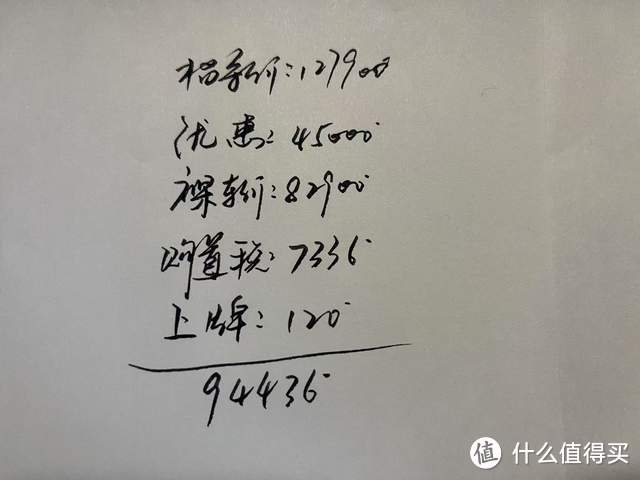 指导价:127900
优惠:45000
裸车价:82900
购置税:7336
上牌:120
94436
值 什么值得买